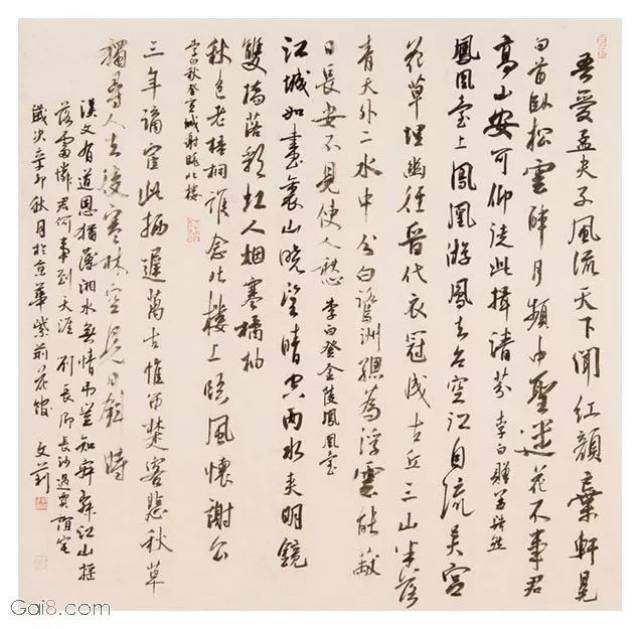 吾愛孟夫子風流天下聞紅顏棄軒冕
白首臥松雲醉月頻中聖迷花不事君
高山安可仰徒此揖清芬 李白贈孟浩然
鳳凰臺上鳳凰游鳳去台空江自流吳宮
花草埋幽徑晉代衣冠成古丘三山半落
青天外二水中分白鷺洲總為浮雲能蔽
日長安不見使人愁 李白登金陵鳳凰臺
江城如畫裏山曉望晴空兩水夾明鏡
雙橋落彩虹人烟寒橘柚
秋色老梧桐誰念北樓上臨風懷謝公
李白秋登宣城謝朓北樓
三年謫宦此栖遲萬古惟留楚客悲秋草
獨尋人去後寒林空見日斜時
漢文有道恩猶薄湘水無情吊豈知寂寂江山搖
落處憐君何事到天涯 劉長卿長沙過賈誼宅
歲次辛卯秋月於京華紫荊花館 文莉
Gai8.com